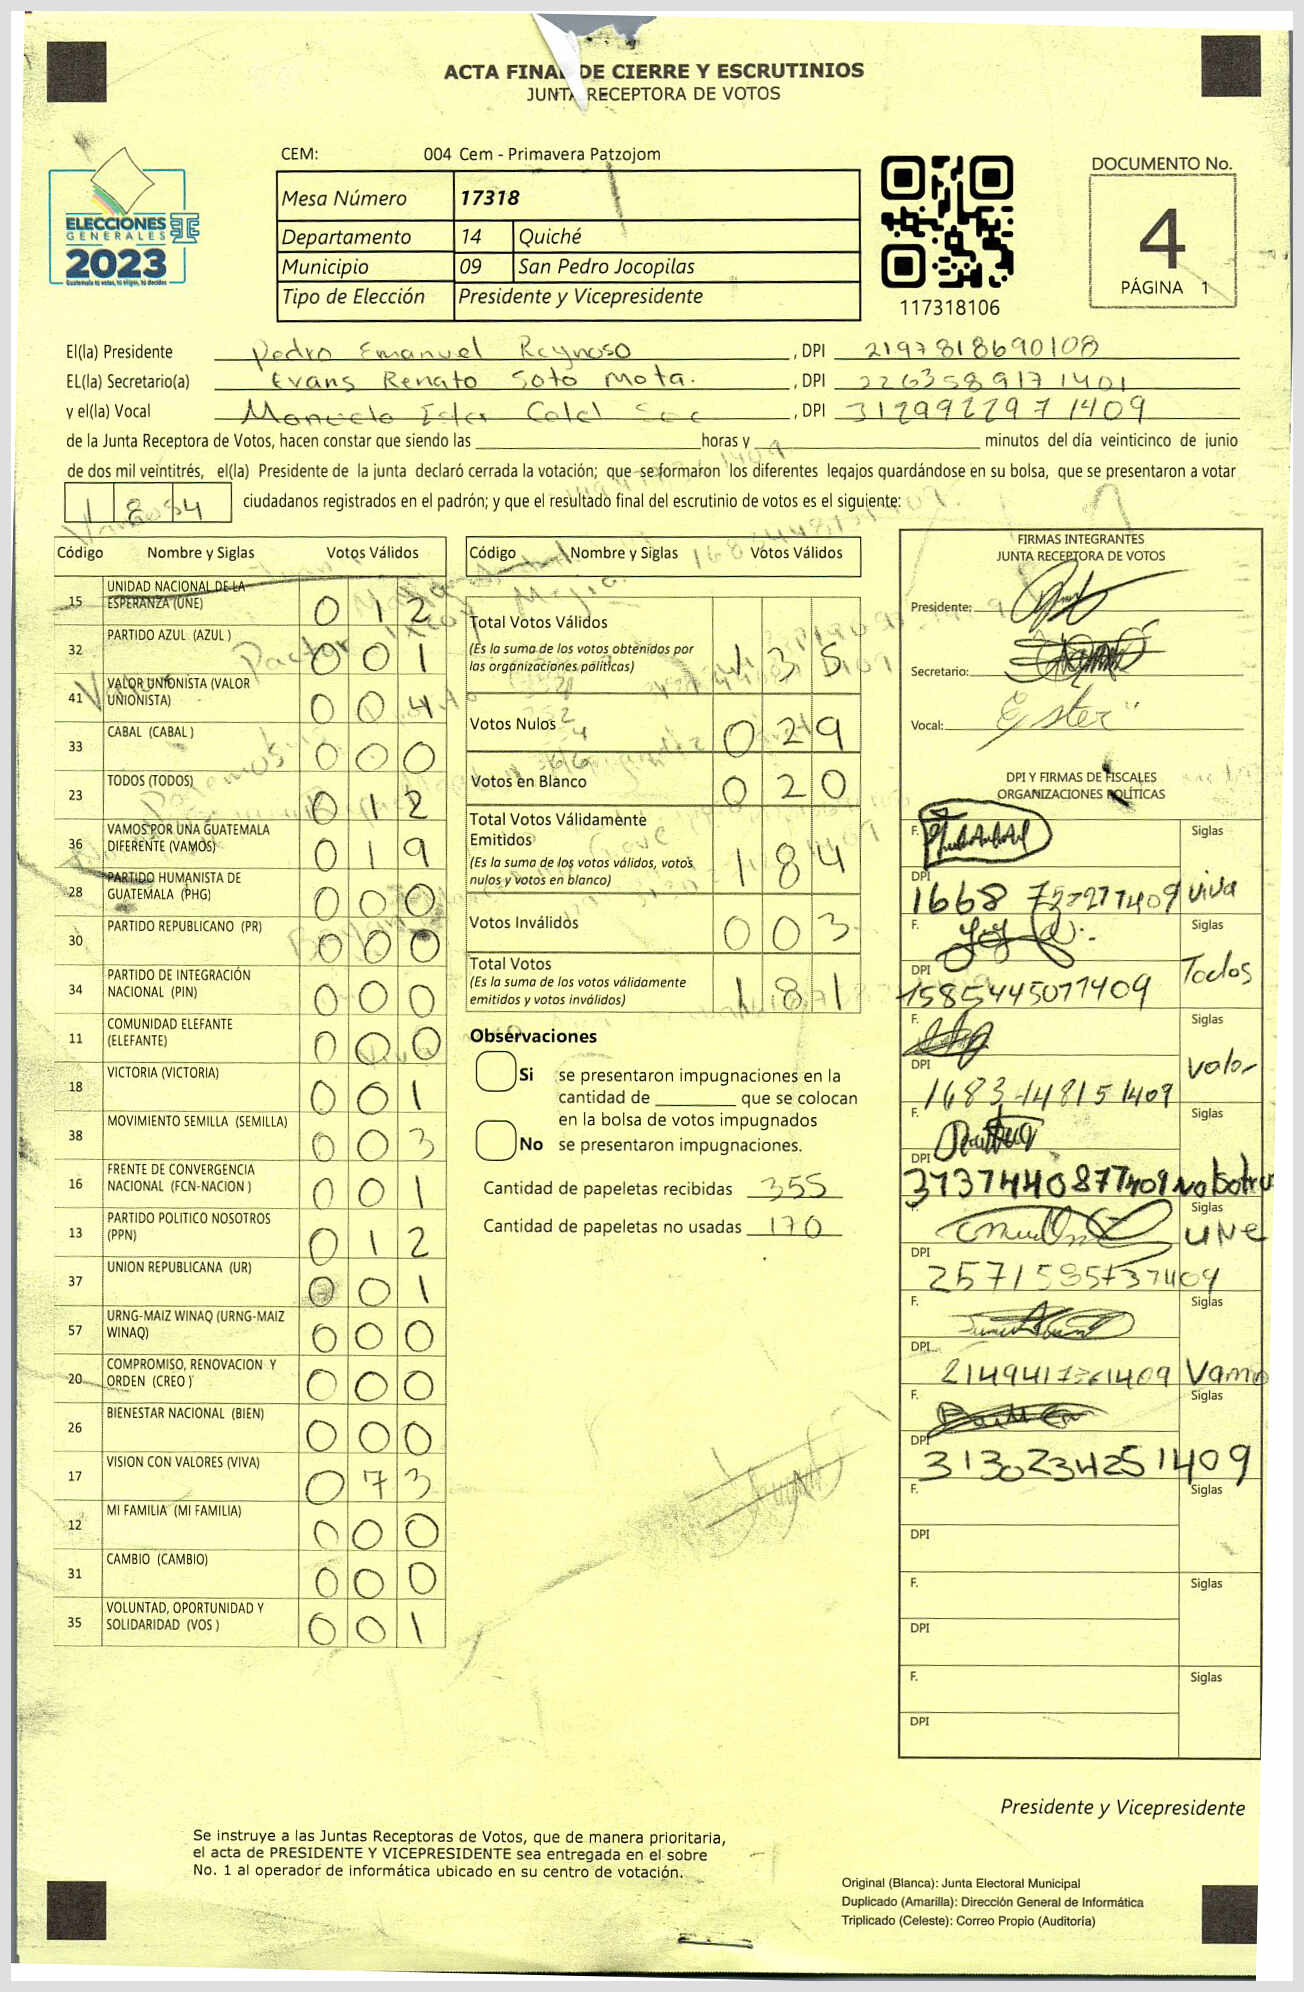 ACTA FINAL DE CIERRE Y ESCRUTINIOS
JUNTA RECEPTORA DE VOTOS
CEM: 004 Cem - Primavera Patzojom
Mesa Número 17318
Departamento 14 Quiché
Municipio 09 San Pedro Jocopilas
Tipo de Elección Presidente y Vicepresidente
ELECCIONES
GENERALES
2023
Guatemala tú votas, tú eliges, tú decides
117318106
DOCUMENTO No.
4
PÁGINA 1
El(la) Presidente Pedro Emanuel Reynoso , DPI 2197818690108
EL(la) Secretario(a) Evans Renato Soto Mota. , DPI 2263589171401
y el(la) Vocal Manuela Ester , DPI 3129922971409
de la Junta Receptora de Votos, hacen constar que siendo las horas y minutos del día veinticinco de junio
de dos mil veintitrés, el(la) Presidente de la junta declaró cerrada la votación; que se formaron los diferentes legajos guardándose en su bolsa, que se presentaron a votar
184 ciudadanos registrados en el padrón; y que el resultado final del escrutinio de votos es el siguiente:
Código Nombre y Siglas Votos Válidos
15 UNIDAD NACIONAL DE LA ESPERANZA (UNE) 0 1 2
32 PARTIDO AZUL (AZUL ) 0 0 1
41 VALOR UNIONISTA (VALOR UNIONISTA) 0 0 4
33 CABAL (CABAL ) 0 0 0
23 TODOS (TODOS) 0 1 2
36 VAMOS POR UNA GUATEMALA DIFERENTE (VAMOS) 0 1 9
28 PARTIDO HUMANISTA DE GUATEMALA (PHG) 0 0 0
30 PARTIDO REPUBLICANO (PR) 0 0 0
34 PARTIDO DE INTEGRACIÓN NACIONAL (PIN) 0 0 0
11 COMUNIDAD ELEFANTE (ELEFANTE) 0 0 0
18 VICTORIA (VICTORIA) 0 0 1
38 MOVIMIENTO SEMILLA (SEMILLA) 0 0 3
16 FRENTE DE CONVERGENCIA NACIONAL (FCN-NACION ) 0 0 1
13 PARTIDO POLITICO NOSOTROS (PPN) 0 1 2
37 UNION REPUBLICANA (UR) 0 0 1
57 URNG-MAIZ WINAQ (URNG-MAIZ WINAQ) 0 0 0
20 COMPROMISO, RENOVACION Y ORDEN (CREO ) 0 0 0
26 BIENESTAR NACIONAL (BIEN) 0 0 0
17 VISION CON VALORES (VIVA) 0 7 3
12 MI FAMILIA (MI FAMILIA) 0 0 0
31 CAMBIO (CAMBIO) 0 0 0
35 VOLUNTAD, OPORTUNIDAD Y SOLIDARIDAD (VOS ) 0 0 1
Código Nombre y Siglas Votos Válidos
Total Votos Válidos 1 3 5
(Es la suma de los votos obtenidos por
las organizaciones políticas)
Votos Nulos 0 2 9
Votos en Blanco 0 2 0
Total Votos Válidamente
Emitidos 1 8 4
(Es la suma de los votos válidos, votos
nulos y votos en blanco)
Votos Inválidos 0 0 3
Total Votos
(Es la suma de los votos válidamente
emitidos y votos inválidos) 1 8 1
Observaciones
Si se presentaron impugnaciones en la
cantidad de que se colocan
en la bolsa de votos impugnados
No se presentaron impugnaciones.
Cantidad de papeletas recibidas 355
Cantidad de papeletas no usadas 170
FIRMAS INTEGRANTES
JUNTA RECEPTORA DE VOTOS
Presidente:
Secretario:
Vocal: Ester
DPI Y FIRMAS DE FISCALES
ORGANIZACIONES POLÍTICAS
F. Siglas
DPI 1668 viva
F. Siglas
DPI 1585445071409 Todos
F. Siglas
DPI 1683 48151409 valor
F. Siglas
DPI 3137440877409
F. Siglas
DPI UNE
F. Siglas
DPI Vamo
F. Siglas
DPI 3130234251409
F. Siglas
DPI
F. Siglas
DPI
F. Siglas
DPI
Presidente y Vicepresidente
Se instruye a las Juntas Receptoras de Votos, que de manera prioritaria,
el acta de PRESIDENTE Y VICEPRESIDENTE sea entregada en el sobre
No. 1 al operador de informática ubicado en su centro de votación.
Original (Blanca): Junta Electoral Municipal
Duplicado (Amarilla): Dirección General de Informática
Triplicado (Celeste): Correo Propio (Auditoría)